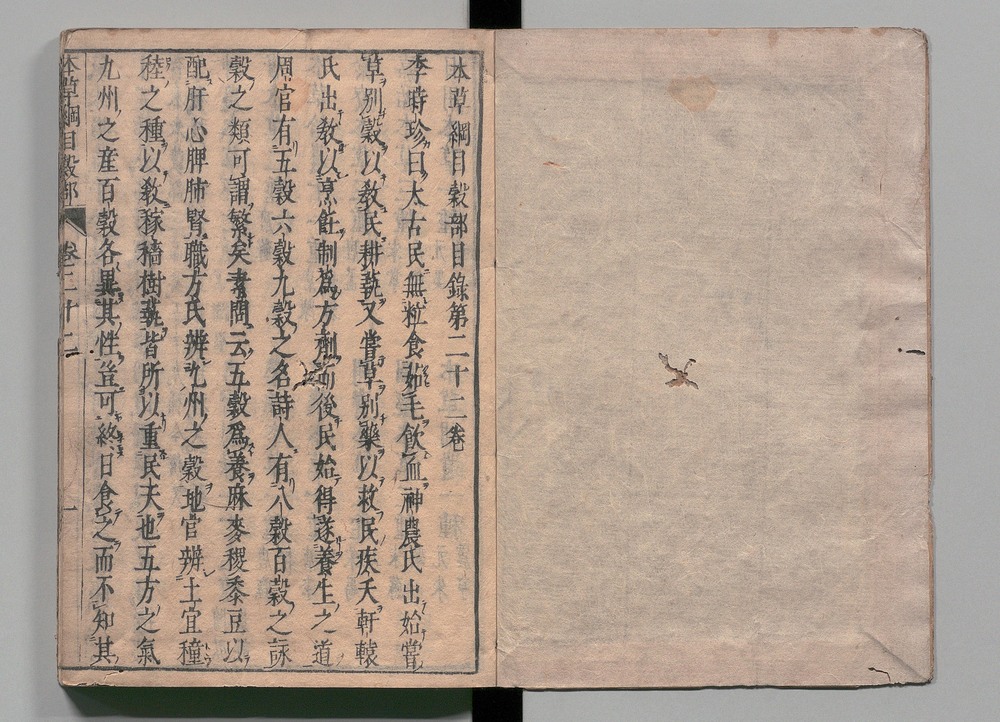 本草綱目穀部目錄第二十二卷
李時珍曰太古民無粒食茹毛飲血神農氏出始嘗
草別穀以敎民耕蓺又嘗草別藥以救民疾夭軒轅
氏出敎以烹飪制爲方劑而後民始得遂養生之道
周官有五穀六穀九穀之名詩人有八穀百穀之詠
穀之類可謂繁矣素問云五穀爲養麻麥稷黍豆以
配肝心脾肺腎職方氏辨九州之穀地官辨土宜穜
稑之種以敎稼穡樹蓺皆所以重民天也五方之氣
九州之産百穀各異其性豈可終日食之而不知其
本草綱目穀部 卷二十二 一